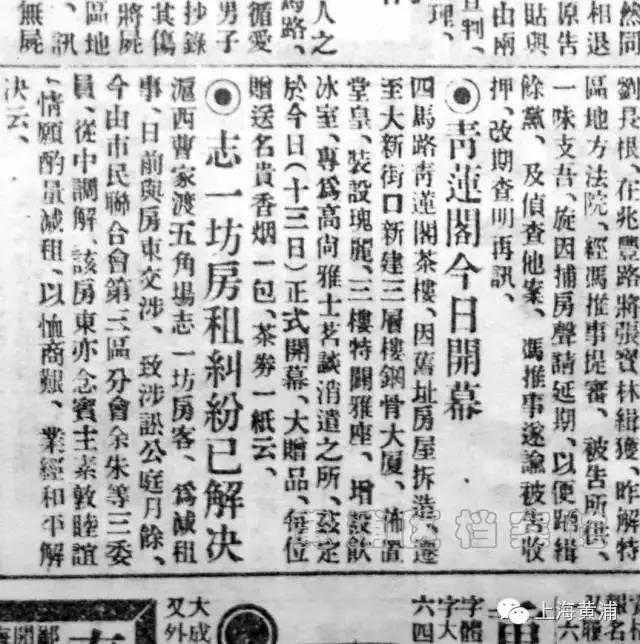 然同
相退
原告
貼與
由南
宣判、
理、
人之
馬路、
循愛
男子
抄錄
其傷
將屍
區地
、訊
無屍
劉長根、在兆豐路將張寶林緝獲、昨解特
區地方法院、經馮推事提審、被告所供、
一味支吾、旋因捕房聲請延期、以便踏緝
餘黨、及偵查他案、馮推事遂諭被告收
押、改期查明再訊、
◉青蓮閣今日開幕
四馬路青蓮閣茶樓、因舊址房屋拆造、遷
至大新街口新建三層樓鋼骨大厦、佈置
堂皇、裝設瑰麗、三樓特闢雅座、增設飲
冰室、專爲高尚雅士茗談消遣之所、茲定
於今日(十三日)正式開幕、大贈品、每位
贈送名貴香烟一包、茶券一紙云、
◉志一坊房租糾紛已解决
滬西曹家渡五角場志一坊房客、爲減租
事、日前與房東交涉、致涉訟公庭月餘、
今由市民聯合會第三區分會余朱等三委
員、從中調解、該房東亦念賓主素敦睦誼
、情願酌量減租、以恤商艱、業經和平解
决云、
報名
字體
字大
六四
大成
又外
上海黄浦